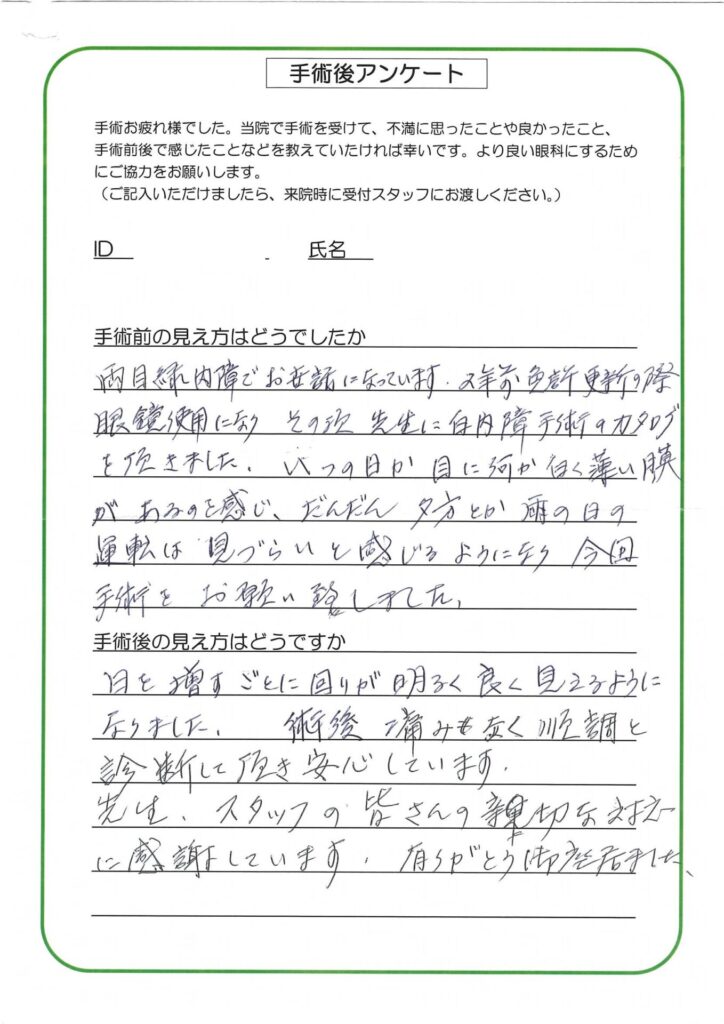 手術後アンケート
手術お疲れ様でした。当院で手術を受けて、不満に思ったことや良かったこと、
手術前後で感じたことなどを教えていたければ幸いです。より良い眼科にするため
にご協力をお願いします。
（ご記入いただけましたら、来院時に受付スタッフにお渡しください。）
ID - 氏名
手術前の見え方はどうでしたか
両目緑内障でお世話になっています. 2年前免許更新の際
眼鏡使用になり その頃 先生に白内障手術のカタログ
を頂きました. いつの日か 目に何か白く薄い膜
があるのを感じ、だんだん 夕方とか 雨の日の
運転は 見づらいと感じる ようになり 今回
手術を お願い致しました.
手術後の見え方はどうですか
日を増すごとに回りが明るく良く見えるように
なりました. 術後 痛みも無く順調と
診断して頂き安心しています.
先生、スタッフの皆さんの親切な対応
に感謝しています. 有りがとう御座居ました、